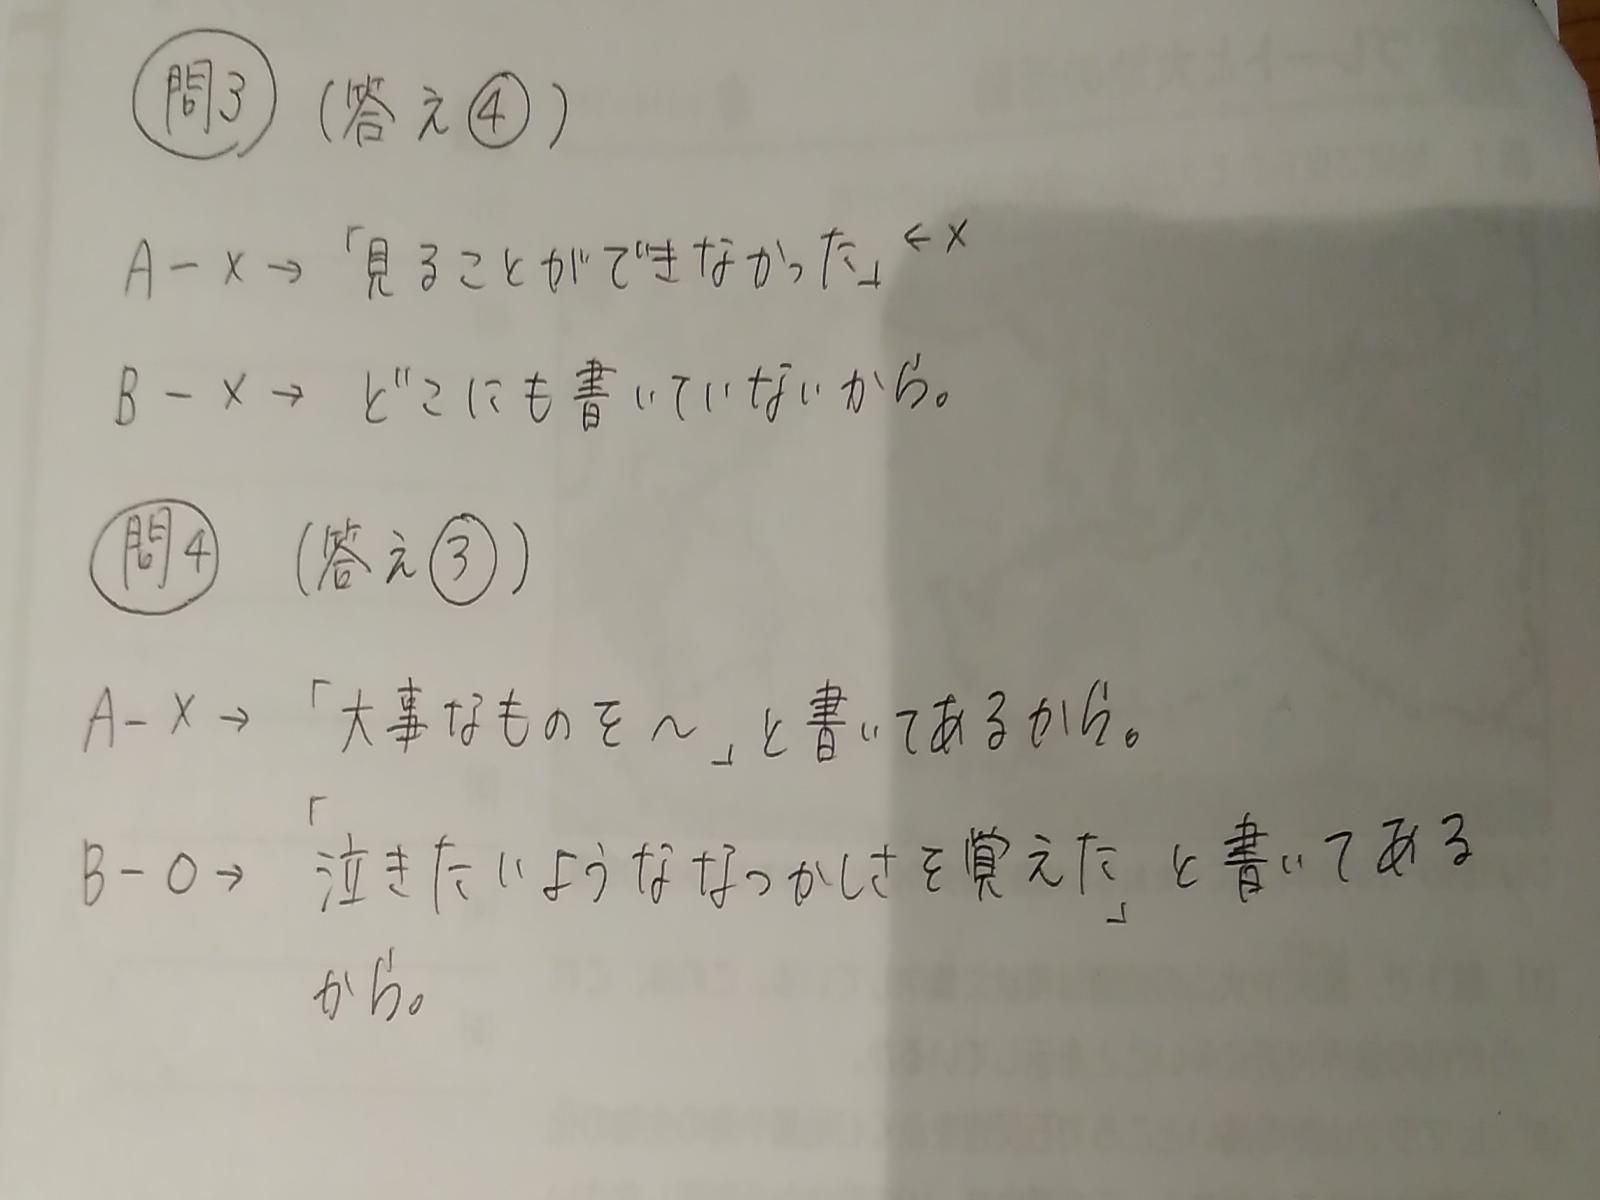 問3 (答え④)
A-×→「見ることができなかった」←×
B-×→ どこにも書いていないから。
問4 (答え③)
A-×→「大事なものを〜」と書いてあるから。
B-○→「泣きたいようななつかしさを覚えた」と書いてある
から。